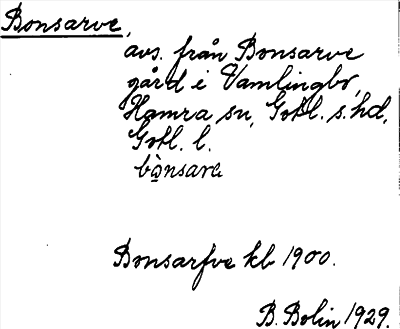 Bonsarve,
avs. från Bonsarve
gård i Vamlingbo,
Hamra sn, Gotl. s. hd,
Gotl. l.
bònsara
Bonsarfve kb 1900.
B. Bolin 1929.